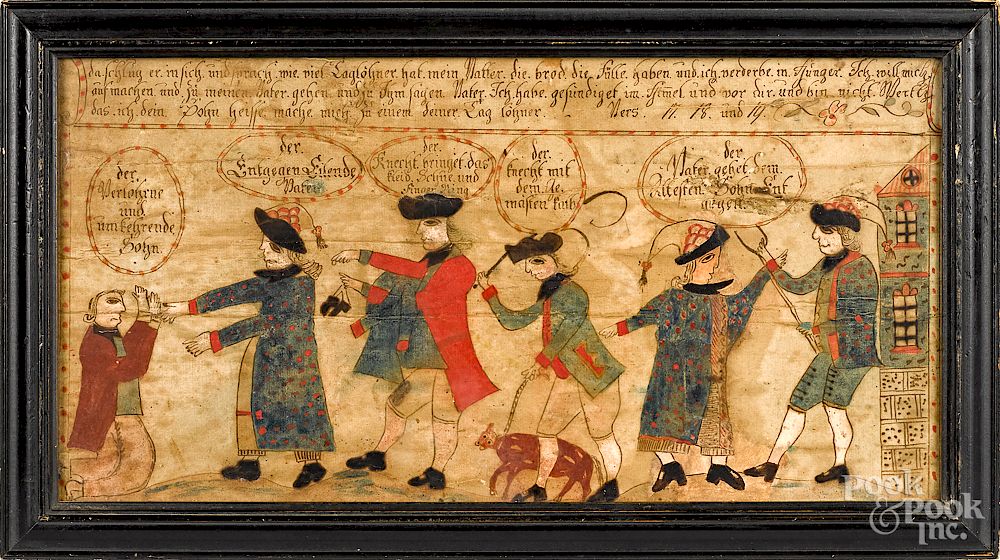 da schlug er in sich, und sprach, wie, viel, Taglöhner, hat, mein Vatter, die, brod, die Fülle, haben, und, ich, verderbe, in, Hunger, Ich, will mich,
auf machen, und zu meinen Vater, gehen, und zu Jhm sagen Vater, Ich, habe, gesündiget, im, Himel, und vor dir, und bin, nicht, Werth,
das, ich, dein, Sohn heisse, mache, mich, zu einem deiner, Tag löhner. Vers, 17. 18. und 19.
der,
Verlohrne
und
umkehrende
Sohn.
der
Entgegen Eilende
Vater
der,
Knecht bringet, das
kleid, Schue, und
Finger Ring
der,
knecht mit
dem, Ge,
mästen kalb,
der
Vater, gehet, dem,
Ältesten, Sohn, Ent
gegen,
Pook
& Pook
Inc.